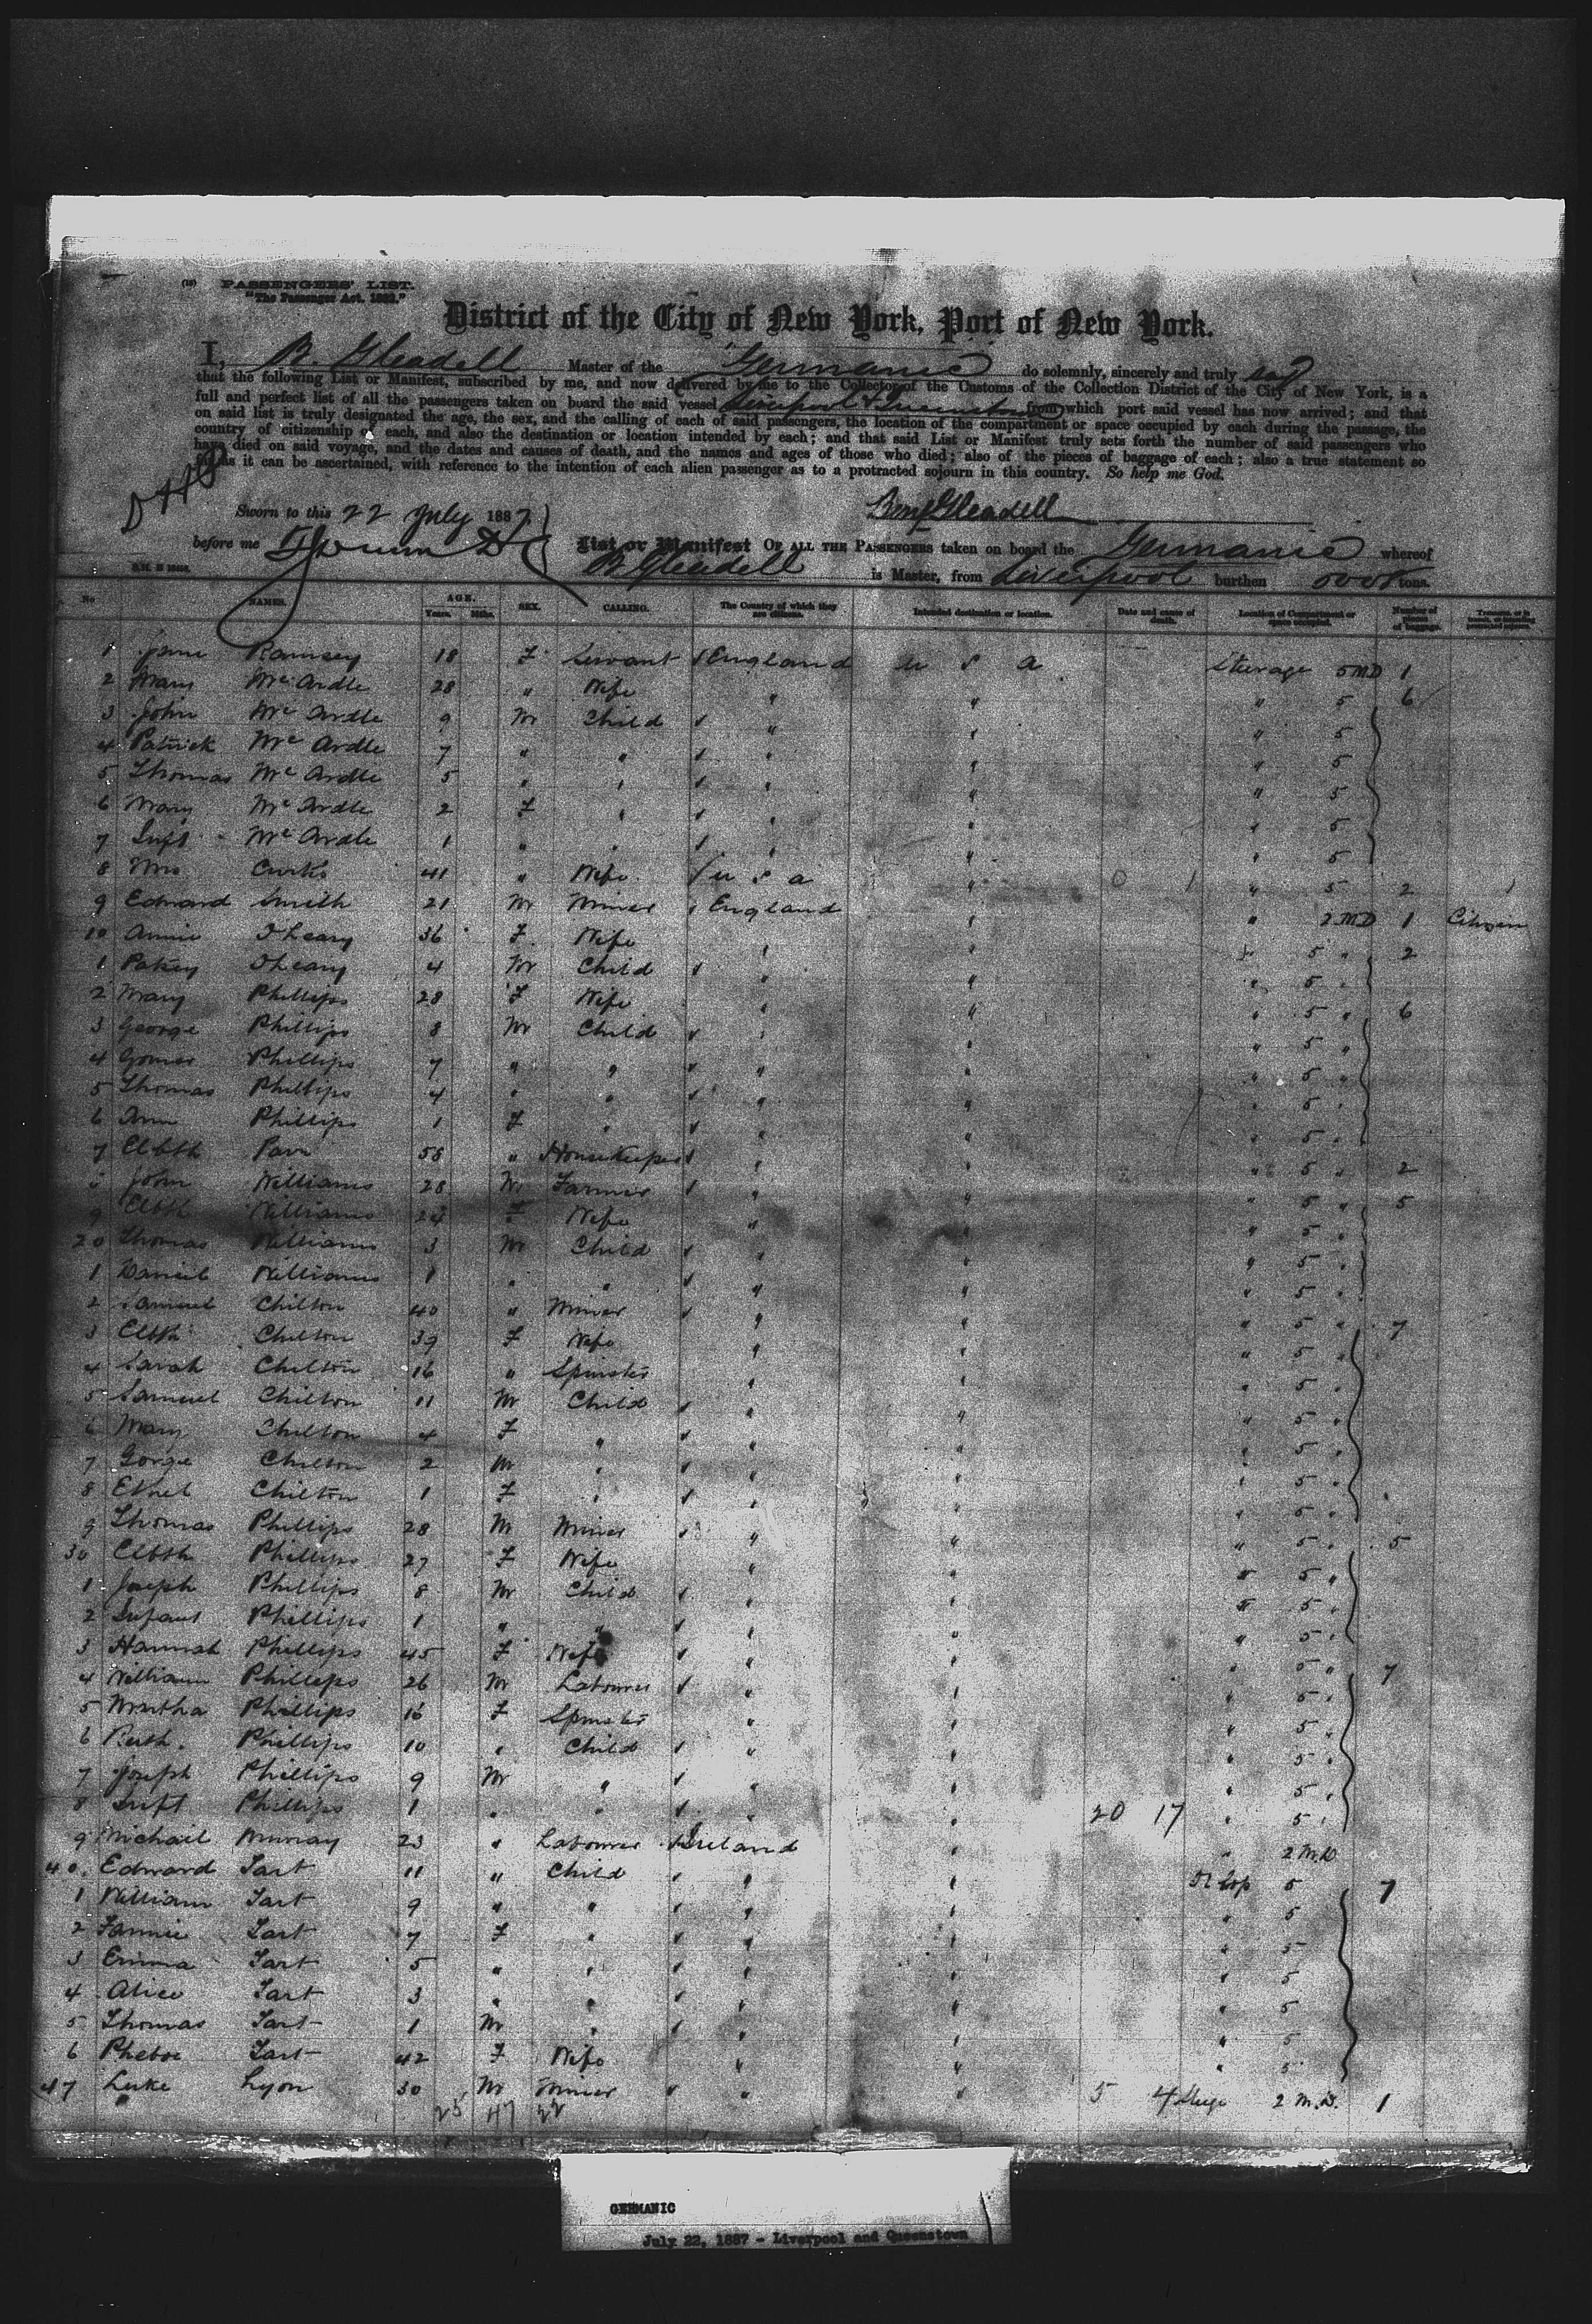 (19) PASSENGERS' LIST.
"The Passenger Act. 1882."
District of the City of New York, Port of New York.
I, B. Gleadell Master of the Germanic do solemnly, sincerely and truly
that the following List or Manifest, subscribed by me, and now delivered by me to the Collector of the Customs of the Collection District of the City of New York, is a
full and perfect list of all the passengers taken on board the said vessel Liverpool & Queenstown from which port said vessel has now arrived; and that
on said list is truly designated the age, the sex, and the calling of each of said passengers, the location of the compartment or space occupied by each during the passage, the
country of citizenship of each, and also the destination or location intended by each; and that said List or Manifest truly sets forth the number of said passengers who
have died on said voyage, and the dates and causes of death, and the names and ages of those who died; also of the pieces of baggage of each; also a true statement so
far as it can be ascertained, with reference to the intention of each alien passenger as to a protracted sojourn in this country. So help me God.
Sworn to this 22 July 1887 Benj Gleadell
before me List or Manifest OF ALL THE PASSENGERS taken on board the Germanic whereof
B Gleadell is Master, from Liverpool burthen tons.
No NAMES. AGE. Years. Mths. SEX. CALLING. The Country of which they are citizens. Intended destination or location. Date and cause of death. Location of Compartment or space occupied. Number of pieces of baggage.
1 Jane Ramsey 18 F Servant England U S A Steerage 5 MD 1
2 Mary McArdle 28 " Wife " " " 5 6
3 John McArdle 9 M Child " " " 5
4 Patrick McArdle 7 " " " " " 5
5 Thomas McArdle 5 " " " " " 5
6 Mary McArdle 2 F " " " " 5
7 Inft McArdle 1 " " " " " 5
8 Mrs 41 " Wife U S A " " 5 2
9 Edward Smith 21 M Miner England " " 2 MD 1 Citizen
10 Annie O'Leary 36 F Wife " " " 5 " 2
1 Patsy O'Leary 4 M Child " " " 5 "
2 Mary Phillips 28 F Wife " " " 5 " 6
3 George Phillips 8 M Child " " " 5 "
4 Gomer Phillips 7 " " " " " 5 "
5 Thomas Phillips 4 " " " " " 5 "
6 Ann Phillips 1 F " " " " 5 "
7 Elbth Parr 58 " Housekeeper " " " 5 " 2
8 John Williams 28 M Farmer " " " 5 " 5
9 Elbth Williams 24 F Wife " " " 5 "
20 Thomas Williams 3 M Child " " " 5 "
1 Daniel Williams 1 " " " " " 5 "
2 Samuel Chilton 40 " Miner " " " 5 " 7
3 Elbth Chilton 39 F Wife " " " 5 "
4 Sarah Chilton 16 " Spinster " " " 5 "
5 Samuel Chilton 11 M Child " " " 5 "
6 Mary Chilton 4 F " " " " 5 "
7 Gorge Chilton 2 M " " " " 5 "
8 Ethel Chilton 1 F " " " " 5 "
9 Thomas Phillips 28 M Miner " " " 5 " 5
30 Elbth Phillips 27 F Wife " " " 5 "
1 Joseph Phillips 8 M Child " " " 5 "
2 Infant Phillips 1 " " " " " 5 "
3 Hannah Phillips 45 F Wife " " " 5 " 7
4 William Phillips 26 M Labourer " " " 5 "
5 Martha Phillips 16 F Spinster " " " 5 "
6 Ruth Phillips 10 " Child " " " 5 "
7 Joseph Phillips 9 M " " " " 5 "
8 Inft Phillips 1 " " " " 20 17 " 5 "
9 Michail Murray 23 " Labourer Ireland " " 2 M.D.
40 Edward Tart 11 " Child " " 5 7
1 William Tart 9 " " " " " 5
2 Fannie Tart 7 F " " " " 5
3 Emma Tart 5 " " " " " 5
4 Alice Tart 3 " " " " " 5
5 Thomas Tart 1 M " " " " 5
6 Phebe Tart 42 F Wife " " " 5
47 Luke Lyon 30 M Miner " " 5 4 Steege 2 M.D. 1
25 47 22
GERMANIC
July 22, 1887 - Liverpool and Queenstown